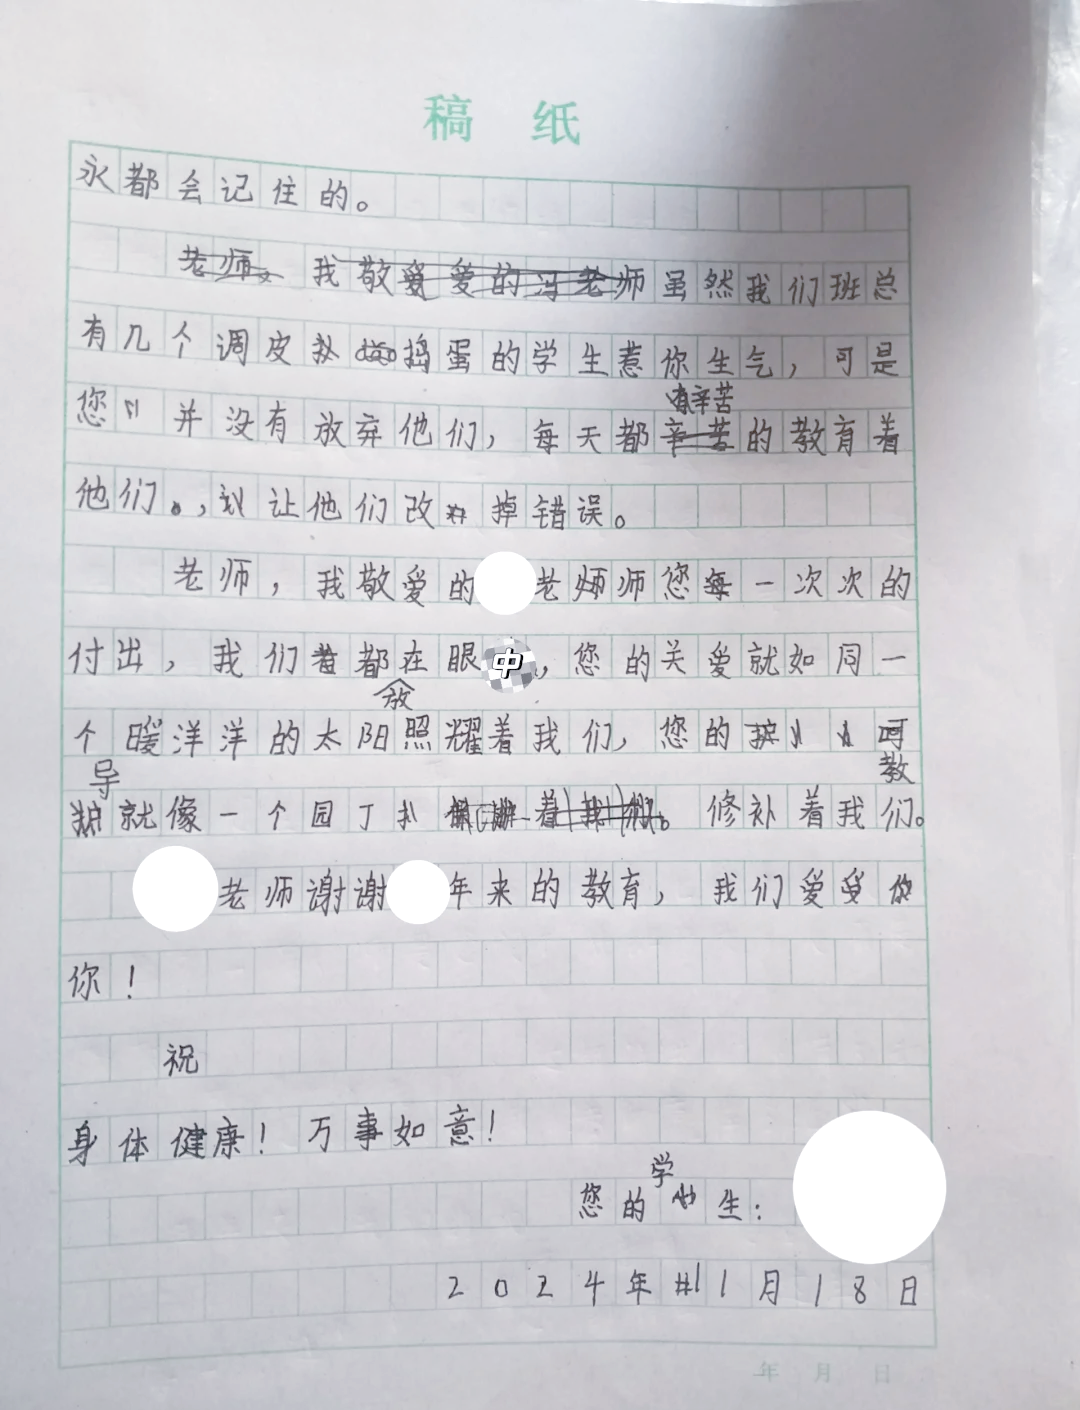 稿 纸
永都会记住的。
老师。我敬爱的冯老师虽然我们班总
有几个调皮捣蛋的学生惹你生气，可是
有辛苦
您并没有放弃他们，每天都辛苦的教育着
他们。，让他们改掉错误。
老师，我敬爱的老师您一次次的
付出，我们都在眼中，您的关爱就如同一
放
个暖洋洋的太阳照耀着我们，您的
导 教
就像一个园丁修补着我们。
老师谢谢年来的教育，我们爱
你！
祝
身体健康！万事如意！
学
您的生：
2024年11月18日
年 月 日